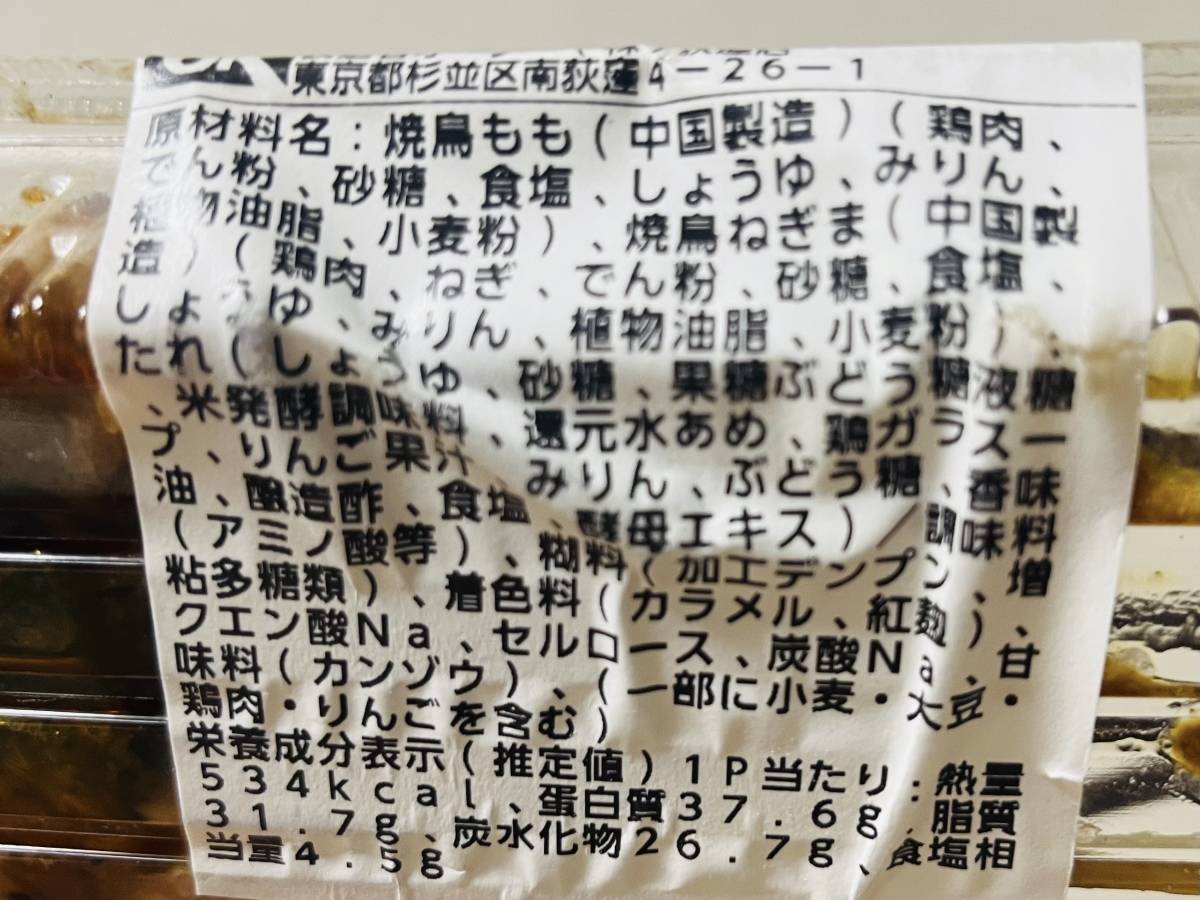 東京都杉並区南荻窪4-26-1
原材料名:焼鳥もも(中国製造)(鶏肉、
でん粉、砂糖、食塩、しょうゆ、みりん、
植物油脂、小麦粉)、焼鳥ねぎま(中国製
造)(鶏肉、ねぎ、でん粉、砂糖、食塩、
しょうゆ、みりん、植物油脂、小麦粉)、
たれ(しょうゆ、砂糖、果糖ぶどう糖液糖
、米発酵調味料、還元水あめ、鶏ガラスー
プ、りんご果汁、みりん、ぶどう糖、香味
油、醸造酢、食塩、酵母エキス)、調味料
(アミノ酸等)、糊料(加工デンプン、増
粘多糖類)、着色料(カラメル、紅麹)、
クエン酸Na、セルロース、炭酸Na、甘
味料(カンゾウ)、(一部に小麦・大豆・
鶏肉・りんごを含む)
栄養成分表示(推定値)1P当たり:熱量
534kcal、蛋白質37.6g、脂質
31.7g、炭水化物26.7g、食塩相
当量4.5g